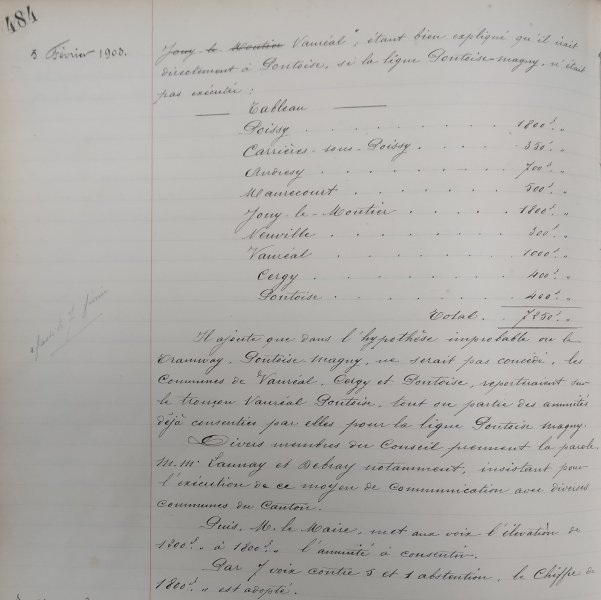 484
5 Février 1903.
Jouy-le-Moutier Vauréal", étant bien expliqué qu'il irait
directement à Pontoise, si la ligne Pontoise-Magny, n'était
pas exécutée :
Tableau
Poissy . . . . . . . . 1800f. "
Carrières-sous-Poissy . . . . . 350f. "
Andresy . . . . . . . 700f. "
Maurecourt . . . . . . 500f. "
Jouy-le-Moutier . . . . . 1800f. "
Neuville . . . . . . . 300f. "
Vauréal . . . . . . . 1000f. "
Cergy . . . . . . . . 400f. "
Pontoise . . . . . . . 400f. "
Total . . 7250f. "
Il ajoute que dans l'hypothèse improbable ou le
Tramway, Pontoise Magny, ne serait pas concédé, les
Communes de Vauréal, Cergy et Pontoise, reporteraient sur
le tronçon Vauréal Pontoise, tout ou partie des annuités
déjà consenties par elles pour la ligne Pontoise Magny.
Divers membres du Conseil prennent la parole,
M.M. Launay et Debray notamment, insistant pour
l'exécution de ce moyen de communication avec diverses
communes du Canton.
Puis, M. le Maire, met aux voix l'élévation de
1200f. " à 1800f. " l'annuité à consentir.
Par 7 voix contre 5 et 1 abstention, le Chiffre de
1800f. " est adopté.